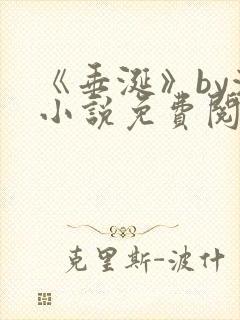 《垂涎》by
小説免費閱
克里斯-波什